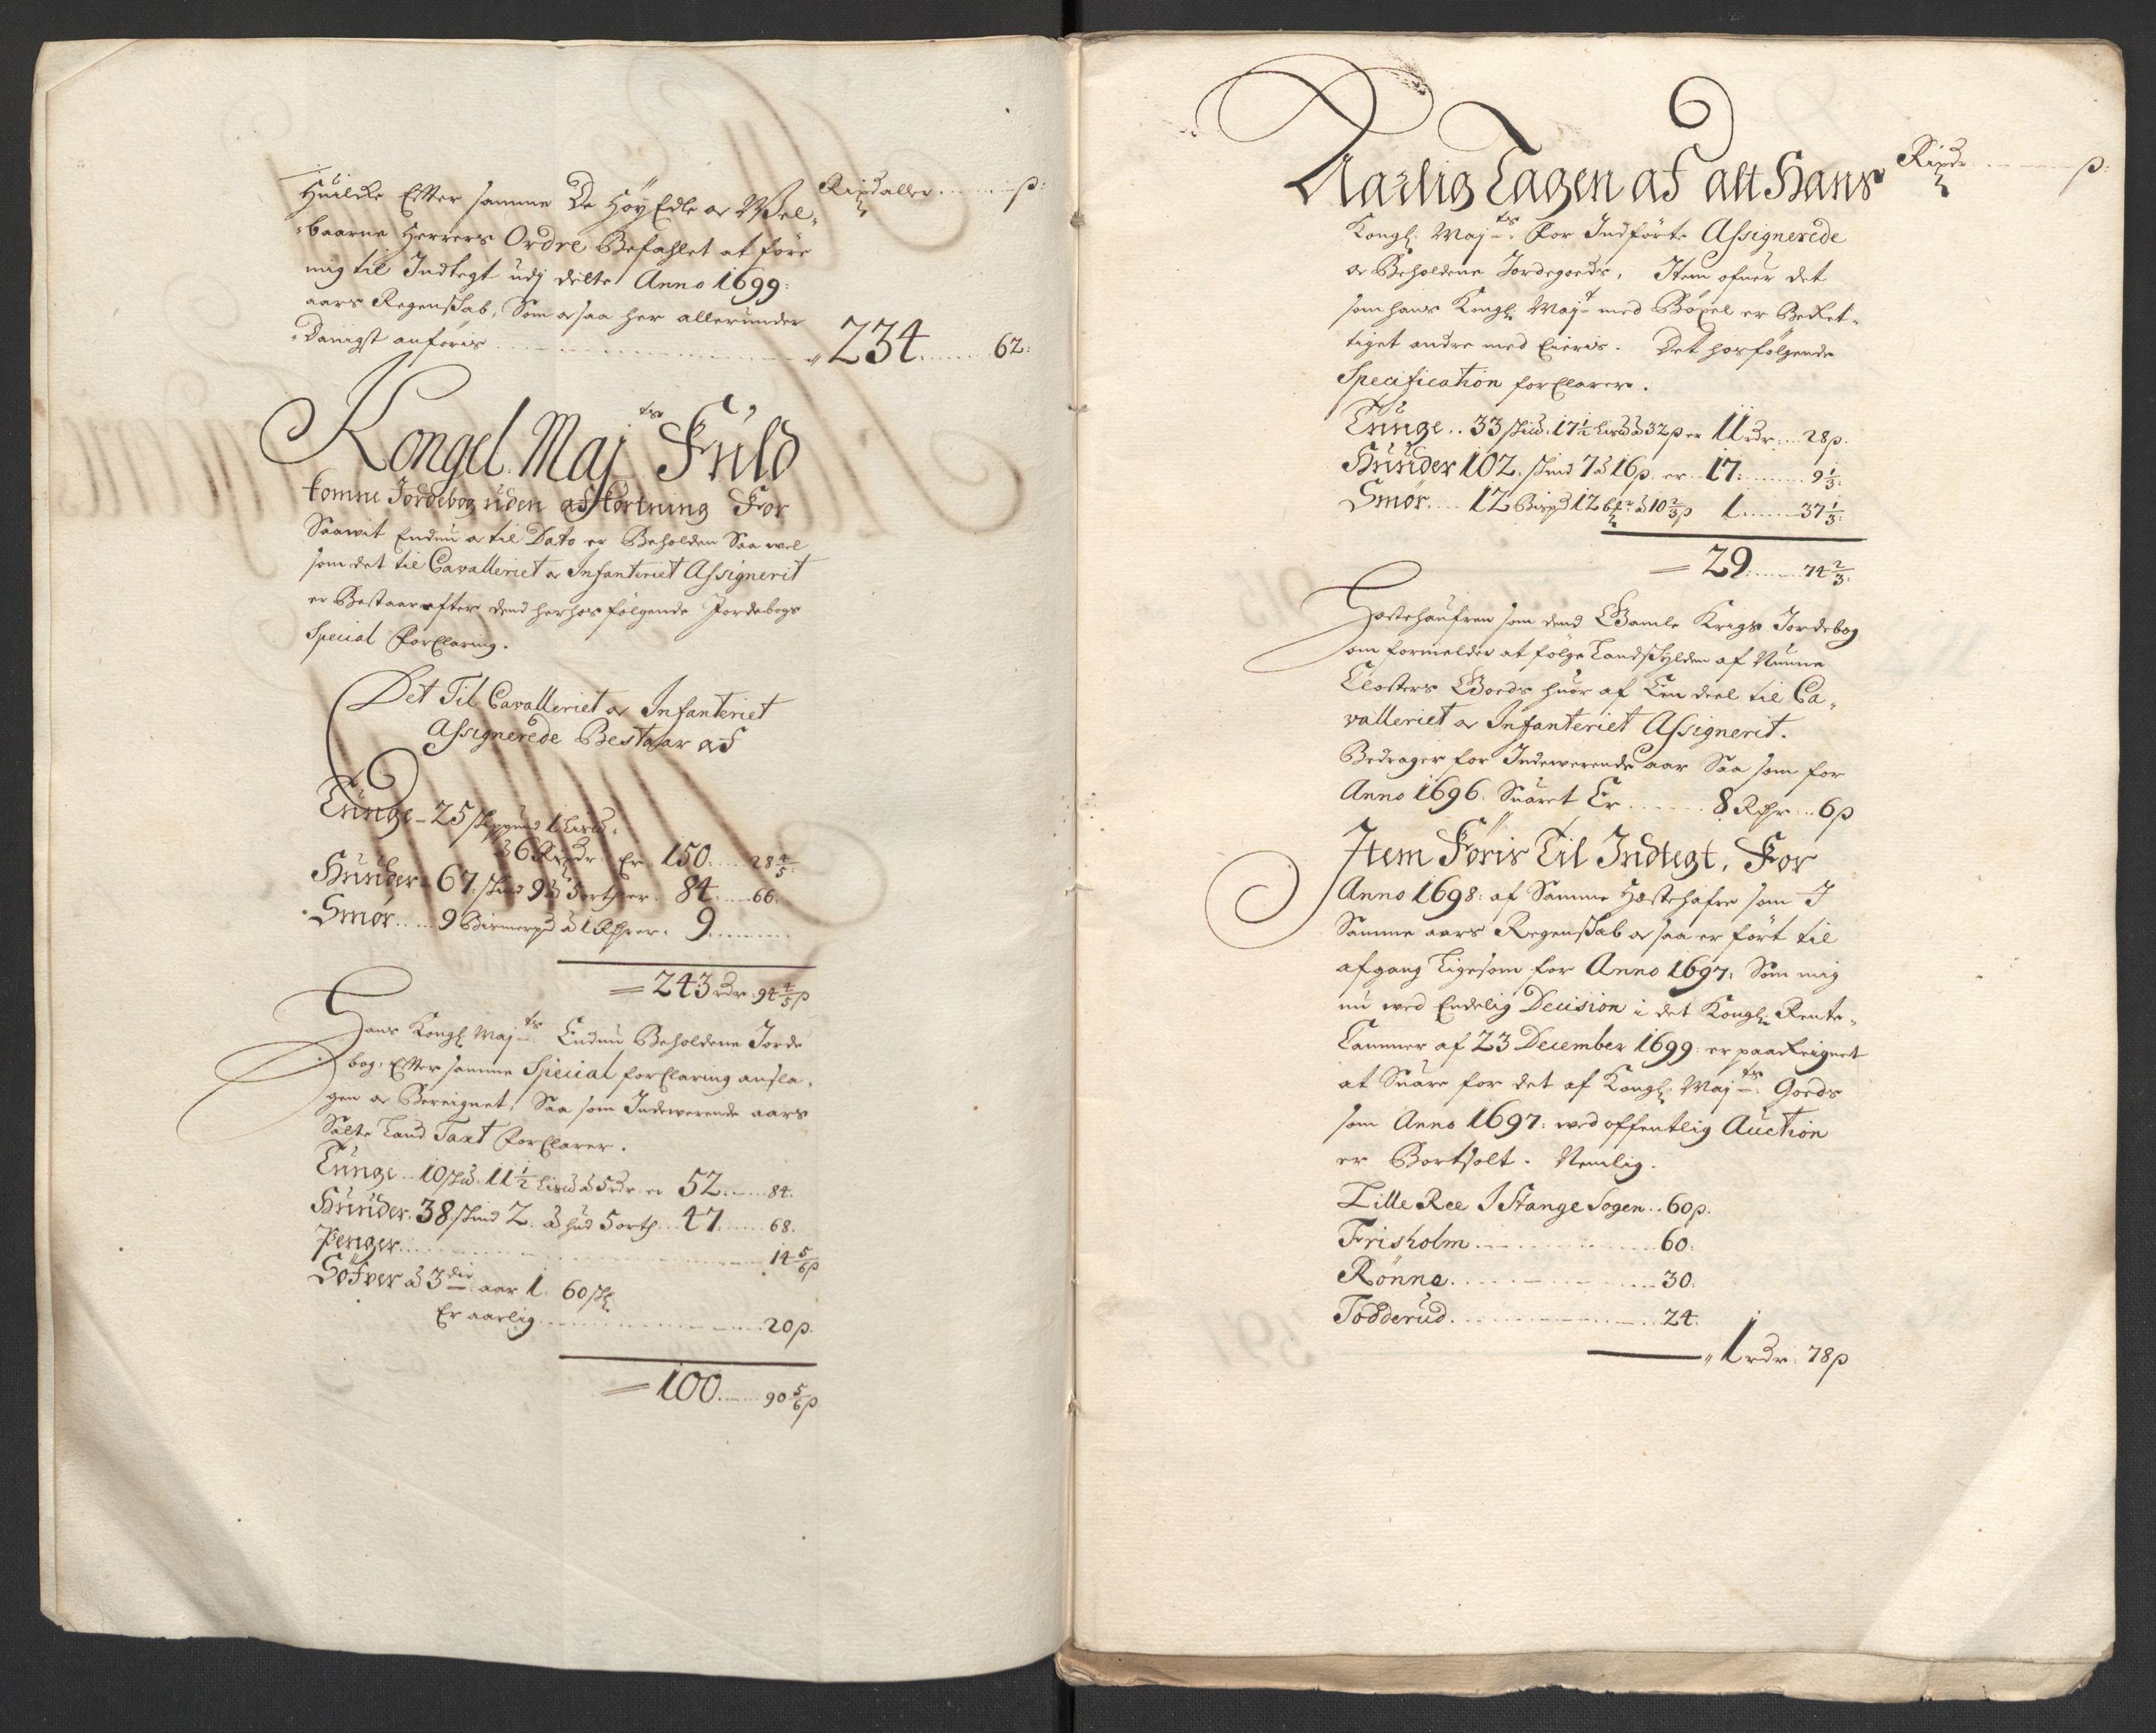 Rixdaller ... ß:
Huilcke Effter samme De Höy Edle oc Wel-
baarne Herrers Ordre Befahlet at före
mig til Indtegt udj dette Anno 1699:
aars Regenskab, Som ocsaa her allerunder
Danigst anföris ... 234 ... 62:
Kongel. Maj.ts Fuld
komne Jordebog uden afkortning For
Saawit Endnu oc til Dato er Beholden Saa wel
som det til Cavalleriet oc Infanteriet Assignerit
er Bestaar efter dend herhos fölgende Jordebogs
Special Forklaring.
Det Til Cavalleriet oc Infanteriet
Assignerede Bestaar af
Tunge - 25 skippund 1 Lispd:
à 6 Rixdr. Er 150: ... 28 4/5:
Huuder - 67: skind 9 à 5 orth er 84 ... 66:
Smör ... 9 Bismerpd à 1 Rdr er 9 ...
= 243 rdr 94 4/5 ß
Hans Kongl. Maj.ts Endnu Beholdene Jorde
bog, Effter samme Special forklaring ansla-
gen oc Beregnet, Saa som Indewerende aars
Satte Land Taxt Forklarer.
Tunge ... 10 skpd. 11 1/2 Lispd à 5 rdr er 52 ... 84.
Huuder. 38 skind 2. à hud 5 orth ... 47 ... 68.
Penger ... 14 5/6 ß
Söfver à 3die aar 1. 60 sk
Er aarlig ... 20 ß.
= 100 ... 90 5/6 ß
Rixdr ... ß:
Aarlig Tagen af alt Hans
Kongl. Maj.ts For Indförte Assignerede
oc Beholdene Jordegoeds, Item ofver det
som hans Kongl. Maj.t med Böxel er Beret-
tiget andre med Eieris. Det hosfölgende
Specification forklarer.
Tunge .. 33 skpd. 17 1/2 Lispd à 32 ß er 11 rdr ... 28 ß.
Huuder 102. skind 7 à 16 ß er 17: ... 9 1/3:
Smör ... 12 Bispd 12 à 10 2/3 ß 1 ... 37 1/3:
= 29 ... 74 2/3:
Hestehaufren som dend Gamle Krigs Jordebog
om formelder at fölge Landskylden af Nunne
Closters Goeds huor af Een deel til Ca-
valleriet oc Infanteriet Assignerit.
Bedrager for Indewerende aar Saa som for
Anno 1696. Suaret Er ... 8 Rdr ... 6 ß
Item Föris Til Indtegt, For
Anno 1698: af Samme Hestehafre som I
Samme aars Regenskab ocsaa er fört til
afgang Ligesom for Anno 1697: Som mig
nu wed Endelig Decision i det Kongl. Rente-
Cammer af 23 December 1699: er paareignet
at Suare for det af Kongl. Maj.ts Goeds
som Anno 1697: wed offentlig Auction
er Bortsolt. Nemlig.
Lille Ree I Stange Sogen .. 60 ß.
Frisholm ... 60:
Rönne ... 30:
Todderud ... 24.
1 rdr: 78 ß